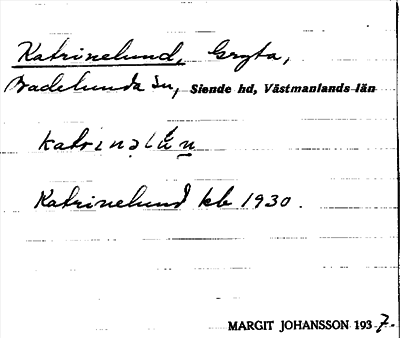 Katrinelund, Gryta,
Badelunda sn, Siende hd, Västmanlands län
katrinəlún
Katrinelund kb 1930.
MARGIT JOHANSSON 1937.